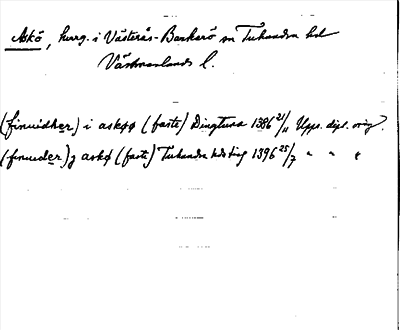 Askö, herrg. i Västerås-Barkarö sn Tuhundra hd
Västmanlands l.
(finuidher) i askøø (faste) Dingtuna 1386 21/11 Upps. dipl. orig.
(finuider) j askø (faste) Tuhundra hds ting 1396 25/7 " " "